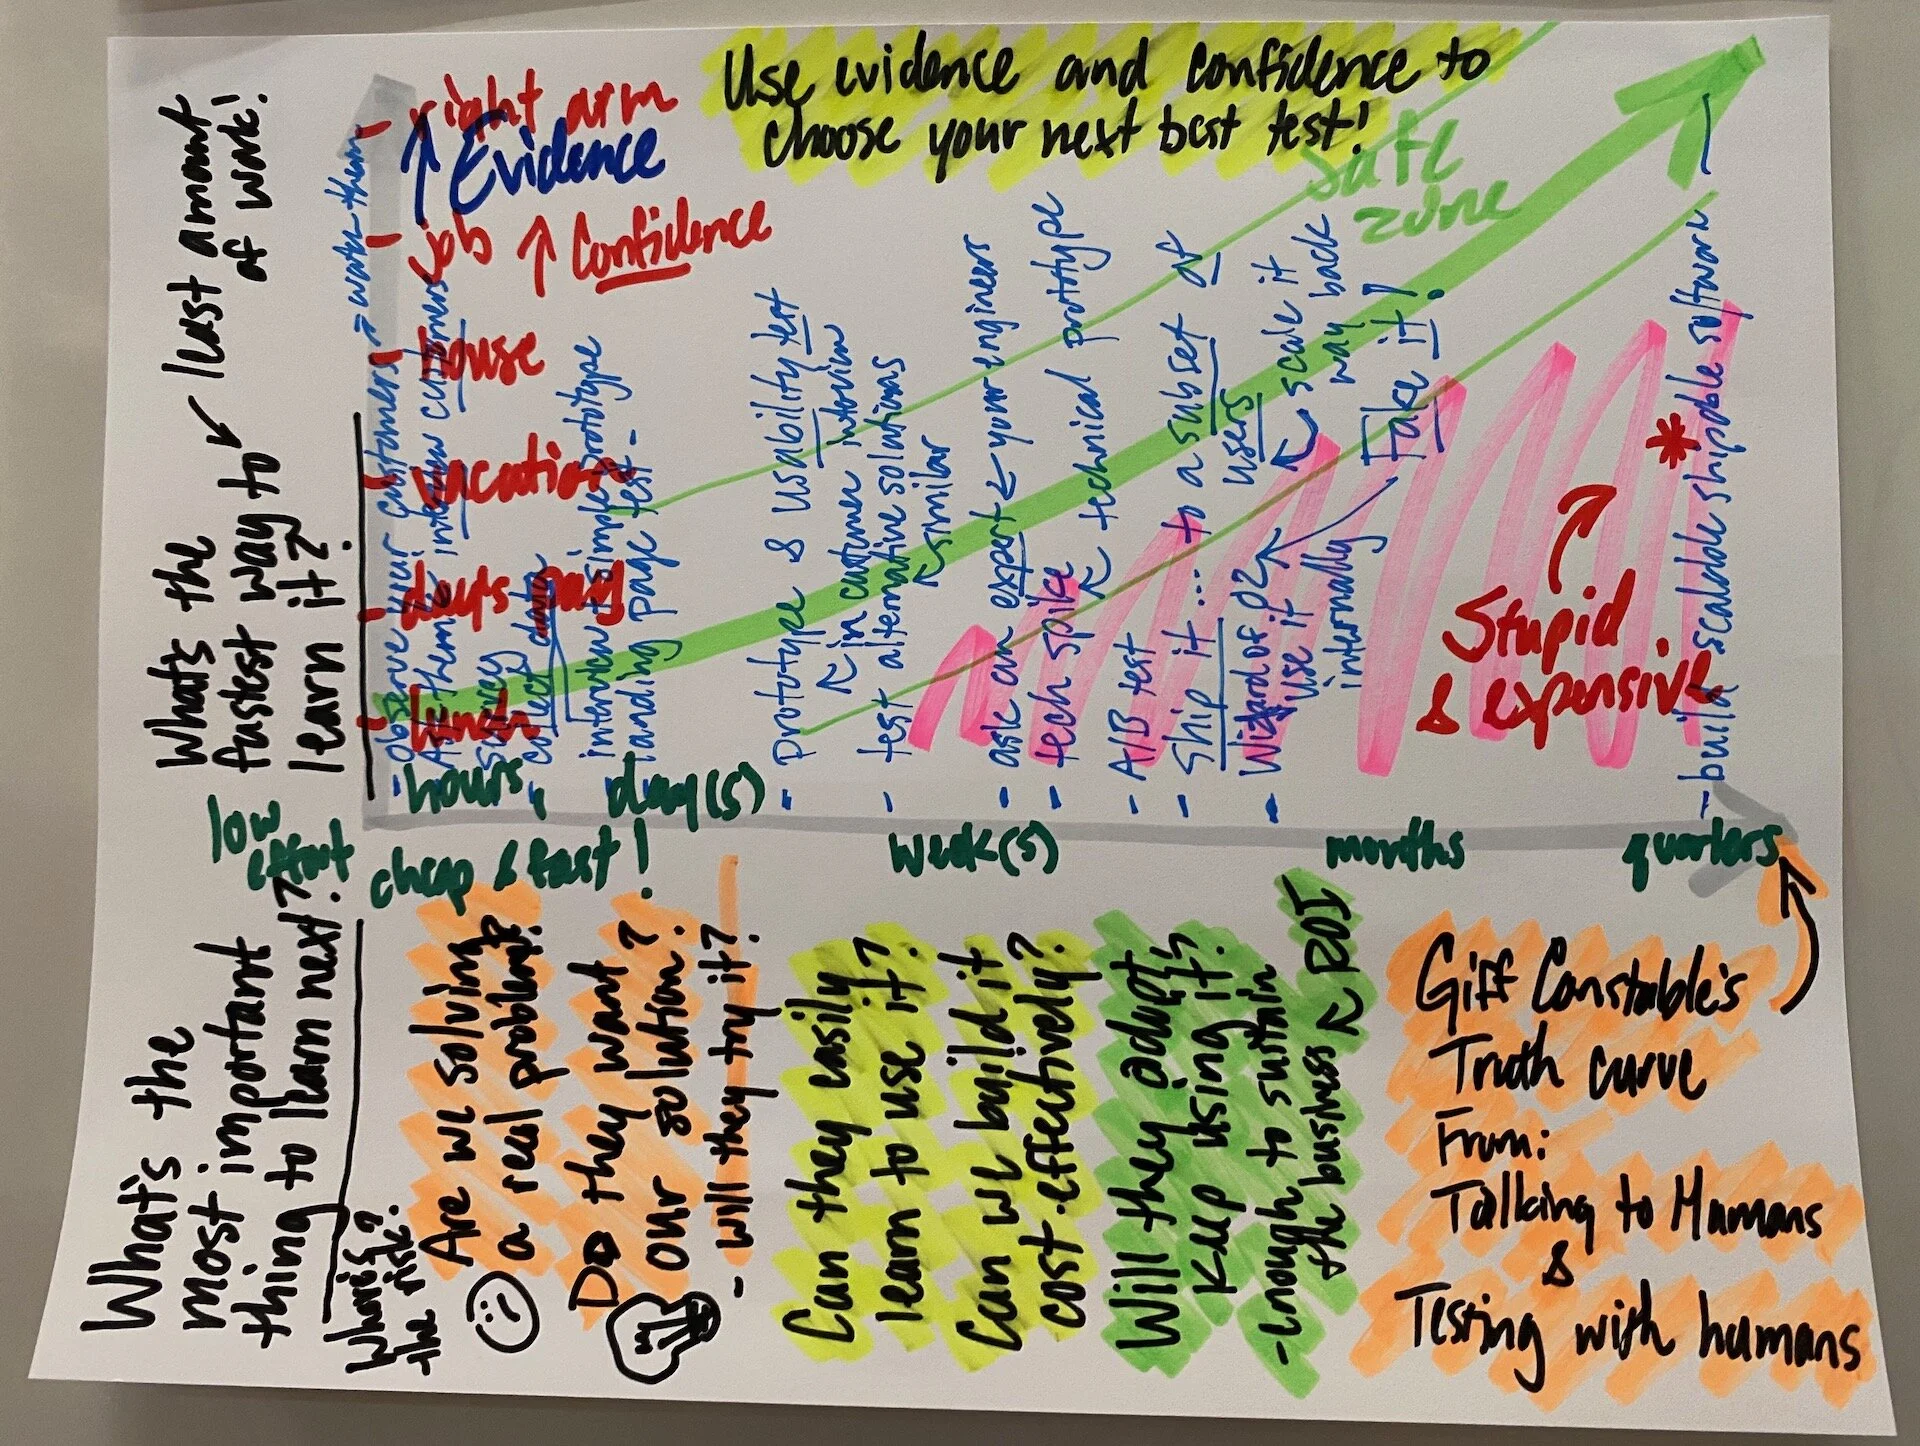 Use evidence and confidence to
choose your next best test!
right arm
↑ Evidence
job ↑ Confidence
house
vacation
day's pay
lunch
safe
zone
Stupid
& expensive
*
What's the
fastest way to
learn it?
least amount
of work!
- observe your customers → watch them
Ask them
interview customers
survey
collect data
interview + simple prototype
landing page test -
- Prototype & usability test
in customer interview
- test alternative solutions
similar
- ask an expert ← your engineers
- tech spike
technical prototype
- A/B test
- Ship it... to a subset of
users
scale it
way back
- Wizard of oz
use it
internally
Fake it!
- build scalable shippable software
low
effort
hours, day(s)
cheap & fast!
week(s)
months
quarters
What's the
most important
thing to learn next?
Where's?
the risk?
Are we solving
a real problem?
Do they want
our solution?
- will they try it?
Can they easily
learn to use it?
Can we build it
cost-effectively?
Will they adopt,
keep using it?
- enough to sustain
the business ← ROI
Giff Constable's
Truth curve
From:
Talking to Humans
&
Testing with humans